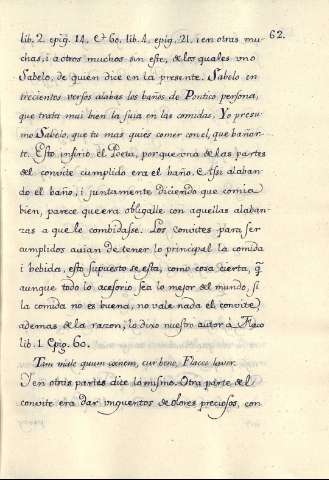 62.
lib. 2. epig. 14. Et 60. lib. 4. epig. 21. i en otras mu-
chas, i a otros muchos sin este, de los quales uno
Sabelo, de quien dice en la presente. Sabelo en
trecientos versos alabas los baños de Pontico persona,
que trata mui bien la suia en las comidas. Yo presu-
mo Sabelo, que tu mas quies comer con el, que bañar-
te. Esto infirió el Poeta, por que una de las partes
del convite cumplido era el baño. Assi alaban-
do el baño, i juntamente diciendo que comia
bien, parece que era obligalle con aquellas alaban-
zas a que le combidasse. Los convites para ser
cumplidos auian de tener lo principal la comida
i bebida, esto supuesto se esta, como cosa cierta, q̃
aunque todo lo acesorio sea lo mejor del mundo, si
la comida no es buena, no vale nada el convite,
ademas de la razon, lo dixo nuestro autor à Flaco
lib. 1. Epig. 60.
Tam male quum cœnem, cur bene, Flacce lavor.
Y en otras partes dice lo mismo. Otra parte del
convite era dar unguentos de olores preciosos, con